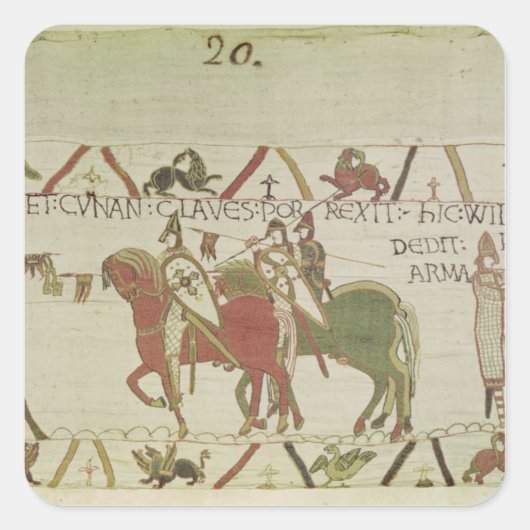 20.
ET: CVNAN: CLAVES: POR REXIT:- hIC: WIL
DEDIT:
ARMA